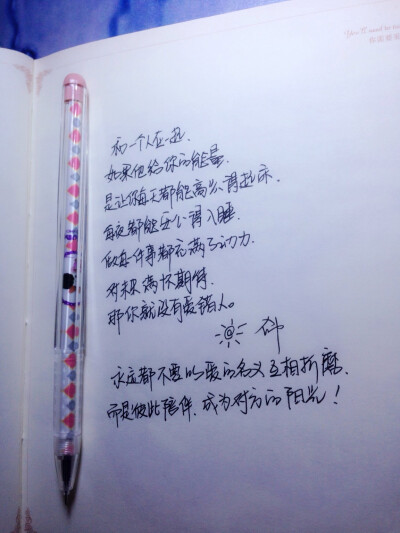 和一个人在一起.
如果他给你的能量.
是让你每天都能高兴得起床.
每夜都能安心得入睡.
做每件事都充满了动力.
对未来满怀期待.
那你就没有爱错人。
永远都不要以爱的名义互相折磨.
而是彼此陪伴.成为对方的阳光！